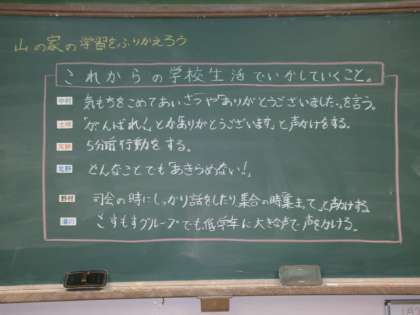 山の家の学習をふりかえろう
これからの学校生活でいかしていくこと。
気もちをこめてあいさつや「ありがとうございました。」を言う。
「がんばれ!」とか「ありがとうございます」と声かけをする。
5分前行動をする。
どんなことでも「あきらめない!」
野村 司会の時にしっかり話をしたり、集合の時「集まって」と声かけする
こすもすグループでも低学年に大きな声で声をかける。